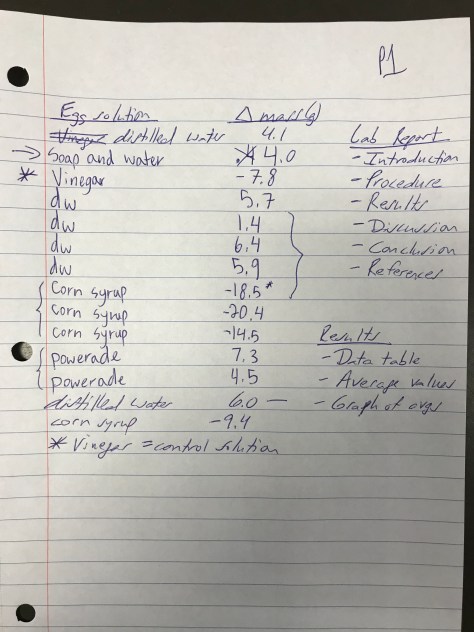 P1
Egg solution   Δ mass(g)
Vinegar distilled water   4.1   Lab Report
→ Soap and water   4.0   - Introduction
* Vinegar   -7.8   - Procedure
dw   5.7   - Results
dw   1.4   - Discussion
dw   6.4   - Conclusion
dw   5.9   - References
Corn syrup   -18.5*
Corn syrup   -20.4
Corn syrup   -14.5   Results
powerade   7.3   - Data table
powerade   4.5   - Average values
distilled water   6.0 —   - Graph of avgs
corn syrup   -9.4
* Vinegar = control solution